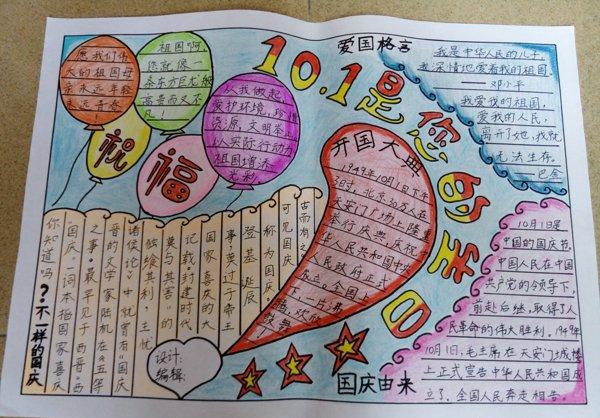 愿我们伟
大的祖国母
亲永远年轻
永远青春
!
祖国啊
你就像一
条东方巨龙威
高奇而又不
凡!
从我做起
爱护环境,珍惜
资源,文明举止
以实际行动为
祖国增添
光彩
祝
福
10.1是您的生日
爱国格言
我是中华人民的儿子
我深情地爱着我的祖国
邓小平
我爱我的祖国,
爱我的人民,
离开了她,我就
无法生存。
巴金
开国大典
1949年10月1日下午
3时,北京30万人在
天安门广场上隆重
举行庆典,庆祝
华人民共和国中央
人民政府成
立。全国上
下,一片沸
腾,欢欣
鼓舞
10月1日是
中国的国庆节
中国人民在中国
共产党的领导下,
前赴后继,取得了人
民革命的伟大胜利。1949年
10月1日,毛主席在天安门城楼
上正式宣告中华人民共和国成
立了,全国人民奔走相告。
国庆由来
?不一样的国庆
你知道吗
“国庆”一词本指国家喜庆
之事,最早见于西晋。西
晋的文学家陆机在《五等
诸侯论》中就曾有“国庆
独飨其利,主忧
莫与其害”的
记载。封建时代
国家喜庆的大
事,莫过于帝王
登基、诞辰
称为国庆。
可见国庆
古而有之
设计:
编辑: